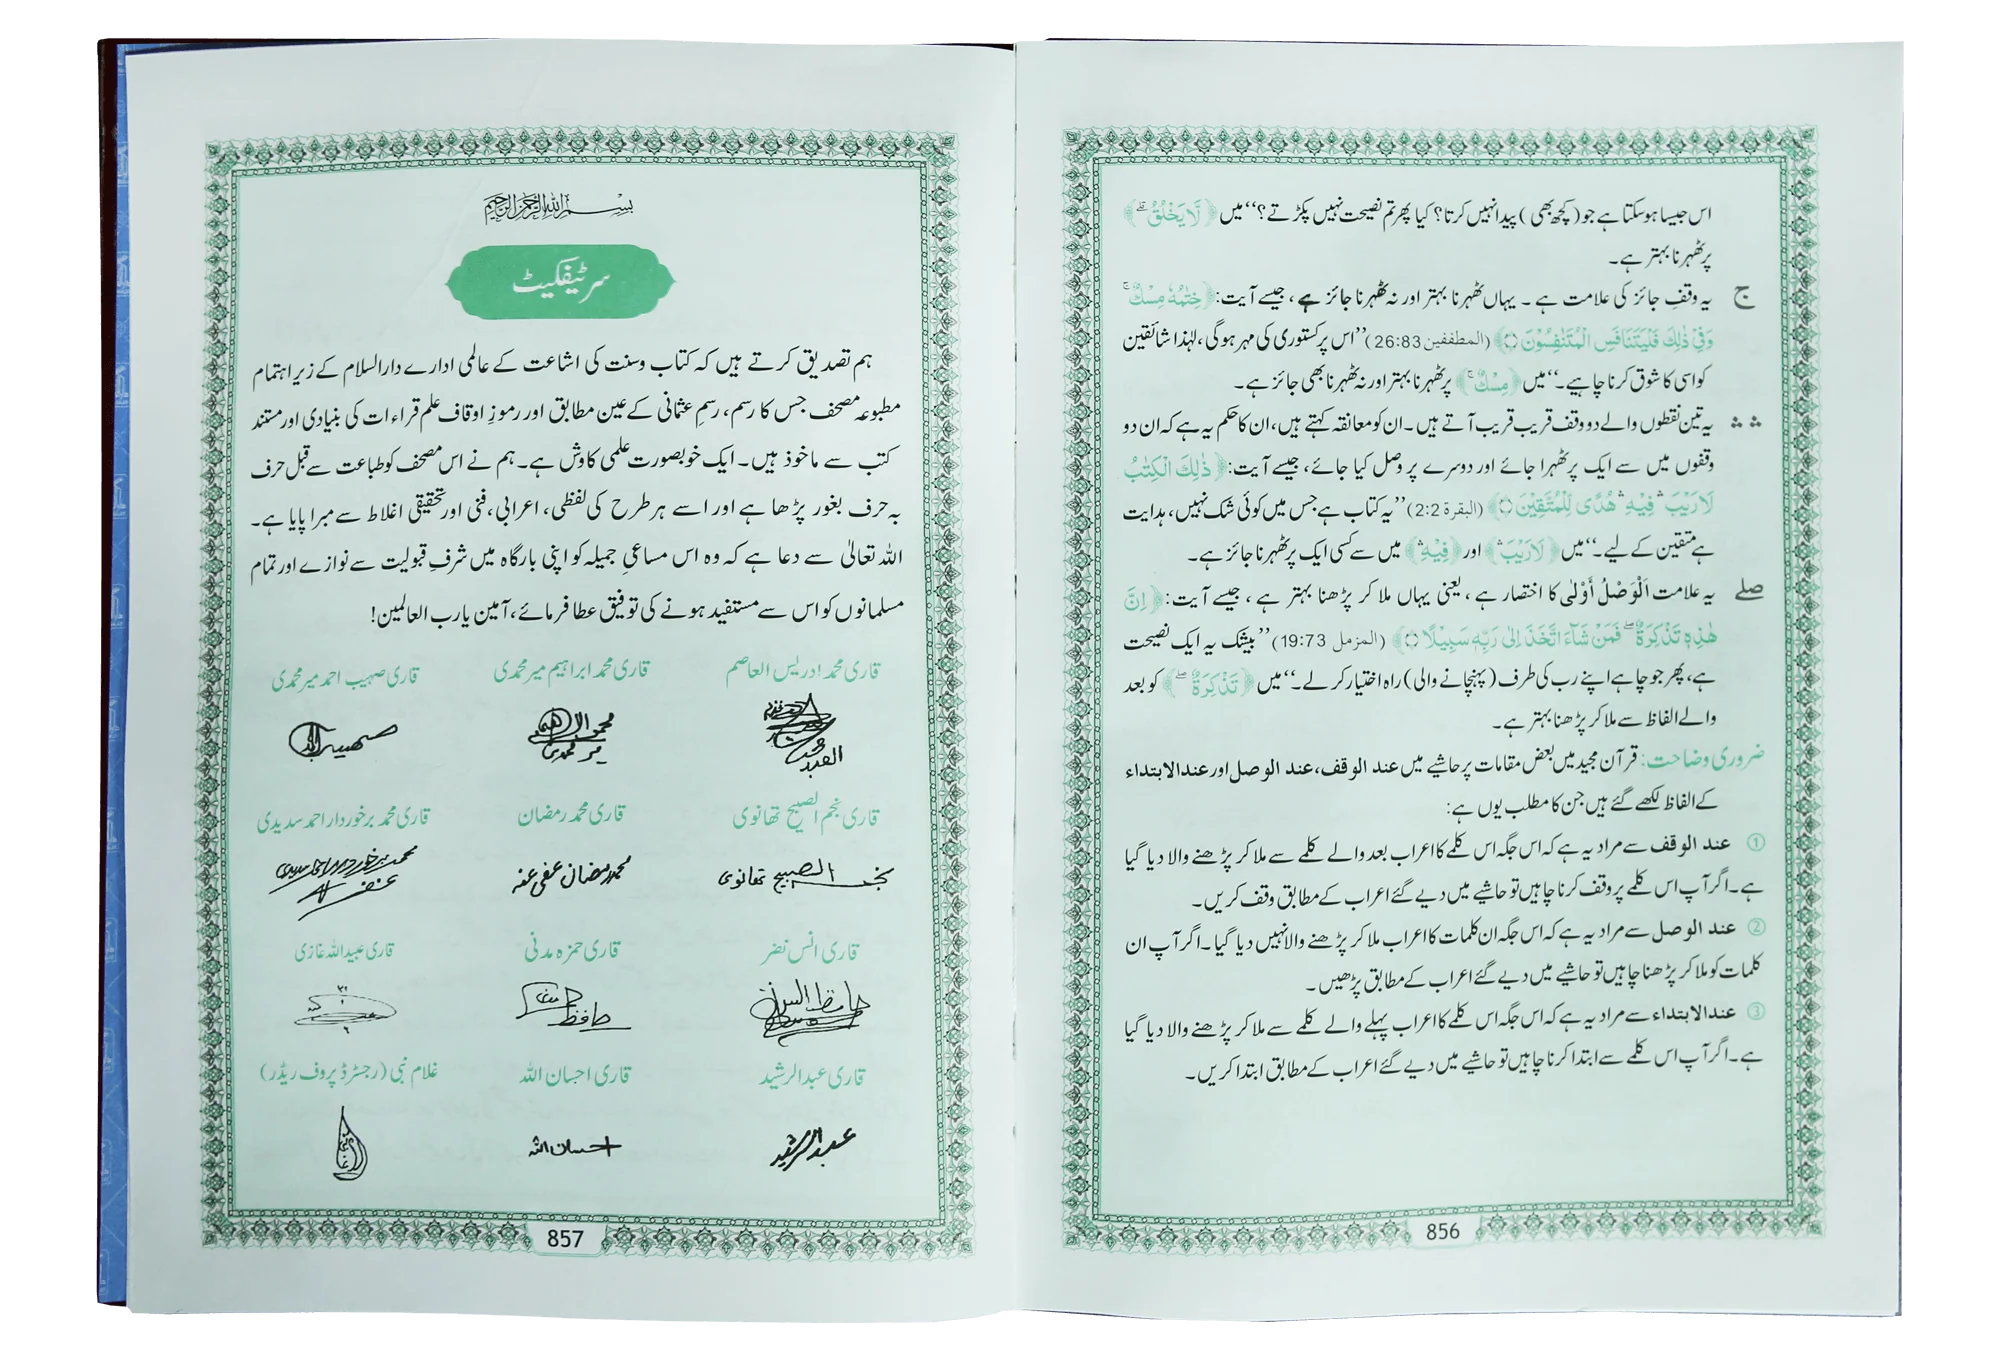 اس جیسا ہو سکتا ہے جو (کچھ بھی) پیدا نہیں کرتا؟ کیا پھر تم نصیحت نہیں پکڑتے؟‘‘ میں ﴿لَّا يَخْلُقُ ۗ﴾
پر ٹھہرنا بہتر ہے۔
ج یہ وقفِ جائز کی علامت ہے ۔ یہاں ٹھہرنا بہتر اور نہ ٹھہرنا جائز ہے، جیسے آیت: ﴿خِتٰمُهٗ مِسْكٌ ۚ
وَفِيْ ذٰلِكَ فَلْيَتَنَافَسِ الْمُتَنٰفِسُوْنَ ۝﴾ (المطففین 26:83) ’’اس پر کستوری کی مہر ہوگی، لہٰذا شائقین
کو اسی کا شوق کرنا چاہیے۔‘‘ میں ﴿مِسْكٌ ۚ﴾ پر ٹھہرنا بہتر اور نہ ٹھہرنا بھی جائز ہے۔
ۛ ۛ یہ تین نقطوں والے دو وقف قریب قریب آتے ہیں۔ ان کو معانقہ کہتے ہیں، ان کا حکم یہ ہے کہ ان دو
وقفوں میں سے ایک پر ٹھہرا جائے اور دوسرے پر وصل کیا جائے، جیسے آیت: ﴿ذٰلِكَ الْكِتٰبُ
لَا رَيْبَ ۛ فِيْهِ ۛ هُدًى لِّلْمُتَّقِيْنَ ۝﴾ (البقرة 2:2) ’’یہ کتاب ہے جس میں کوئی شک نہیں، ہدایت
ہے متقین کے لیے۔‘‘ میں ﴿لَا رَيْبَ ۛ﴾ اور ﴿فِيْهِ ۛ﴾ میں سے کسی ایک پر ٹھہرنا جائز ہے۔
صلے یہ علامت اَلْوَصْلُ أَوْلٰی کا اختصار ہے، یعنی یہاں ملا کر پڑھنا بہتر ہے، جیسے آیت: ﴿اِنَّ
هٰذِهٖ تَذْكِرَةٌ ۖ فَمَنْ شَآءَ اتَّخَذَ اِلٰى رَبِّهٖ سَبِيْلًا ۝﴾ (المزمل 19:73) ’’بیشک یہ ایک نصیحت
ہے، پھر جو چاہے اپنے رب کی طرف (پہنچانے والی) راہ اختیار کر لے۔‘‘ میں ﴿تَذْكِرَةٌ ۖ﴾ کو بعد
والے الفاظ سے ملا کر پڑھنا بہتر ہے۔
ضروری وضاحت: قرآن مجید میں بعض مقامات پر حاشیے میں عند الوقف، عند الوصل اور عند الابتداء
کے الفاظ لکھے گئے ہیں جن کا مطلب یوں ہے:
① عند الوقف سے مراد یہ ہے کہ اس جگہ اس کلمے کا اعراب بعد والے کلمے سے ملا کر پڑھنے والا دیا گیا
ہے۔ اگر آپ اس کلمے پر وقف کرنا چاہیں تو حاشیے میں دیے گئے اعراب کے مطابق وقف کریں۔
② عند الوصل سے مراد یہ ہے کہ اس جگہ ان کلمات کا اعراب ملا کر پڑھنے والا نہیں دیا گیا۔ اگر آپ ان
کلمات کو ملا کر پڑھنا چاہیں تو حاشیے میں دیے گئے اعراب کے مطابق پڑھیں۔
③ عند الابتداء سے مراد یہ ہے کہ اس جگہ اس کلمے کا اعراب پہلے والے کلمے سے ملا کر پڑھنے والا دیا گیا
ہے۔ اگر آپ اس کلمے سے ابتدا کرنا چاہیں تو حاشیے میں دیے گئے اعراب کے مطابق ابتدا کریں۔
856
بسم اللہ الرحمن الرحیم
سرٹیفکیٹ
ہم تصدیق کرتے ہیں کہ کتاب و سنت کی اشاعت کے عالمی ادارے دارالسلام کے زیر اہتمام
مطبوعہ مصحف جس کا رسم، رسمِ عثمانی کے عین مطابق اور رموزِ اوقاف علم قراءات کی بنیادی اور مستند
کتب سے ماخوذ ہیں۔ ایک خوبصورت علمی کاوش ہے۔ ہم نے اس مصحف کو طباعت سے قبل حرف
بہ حرف بغور پڑھا ہے اور اسے ہر طرح کی لفظی، اعرابی، فنی اور تحقیقی اغلاط سے مبرا پایا ہے۔
اللہ تعالیٰ سے دعا ہے کہ وہ اس مساعیِ جمیلہ کو اپنی بارگاہ میں شرفِ قبولیت سے نوازے اور تمام
مسلمانوں کو اس سے مستفید ہونے کی توفیق عطا فرمائے، آمین یا رب العالمین!
قاری محمد ادریس العاصم قاری محمد ابراہیم میر محمدی قاری صہیب احمد میر محمدی
قاری نجم الصبیح تھانوی قاری محمد رمضان قاری محمد برخوردار احمد سدیدی
نجم الصبیح تھانوی محمد رمضان عفی عنہ
قاری انس نضر قاری حمزہ مدنی قاری عبید اللہ غازی
قاری عبدالرشید قاری احسان اللہ غلام نبی (رجسٹرڈ پروف ریڈر)
عبدالرشید احسان اللہ
857